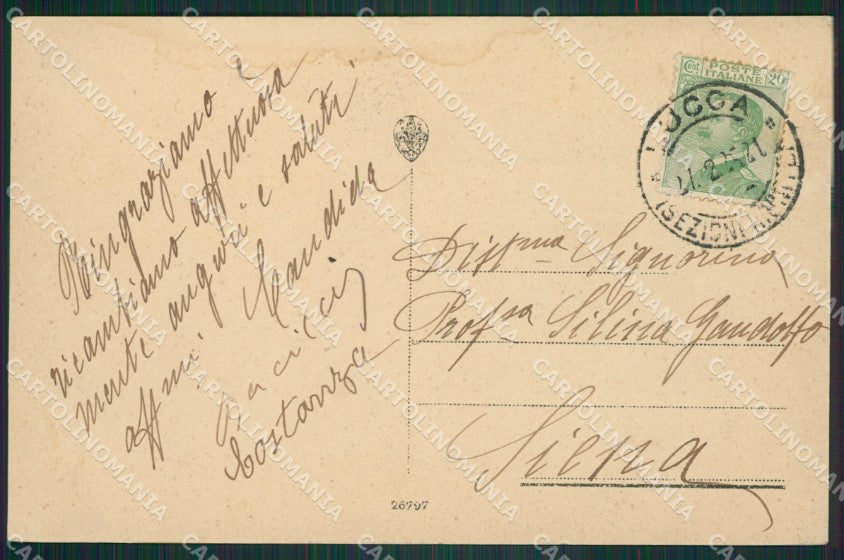 Ringraziamo e
ricambiamo affettuosa
mente auguri e saluti
affmi Candida
Costanza
Cent. POSTE ITALIANE 20
LUCCA
21.2
Distma Signorina
Profssa Silina Gandolfo
Siena
26797
CARTOLINOMANIA